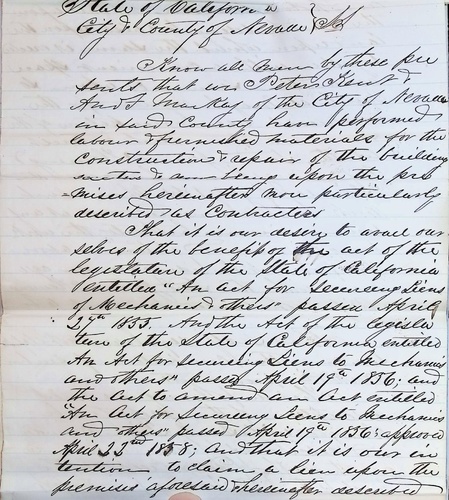 State of California
City & County of Nevada } SS
Know all men by these pre
sents that we Peter Kent &
And J Mackay of the City of Nevada
in said County have performed
labour & furnished materials for the
construction & repair of the building
situated & now being upon the pre
-mises hereinafter more particularly
described as Contractors
That it is our desire to avail our
selves of the benefit of the act of the
legislature of the State of California
entitled "An act for secureing Liens
of Mechanics & others" passed April
27th 1855. And the Act of the legisla
ture of the State of California entitled
An Act for secureing Liens to Mechanics
and others" passed April 19th 1856; and
the Act to amend an Act entitled
"An Act for Secureing Liens to Mechanics
and others" passed April 19th 1856; approved
April 22nd 1858; and that it is our in
tention to claim a lien upon the
premises aforesaid & hereinafter described